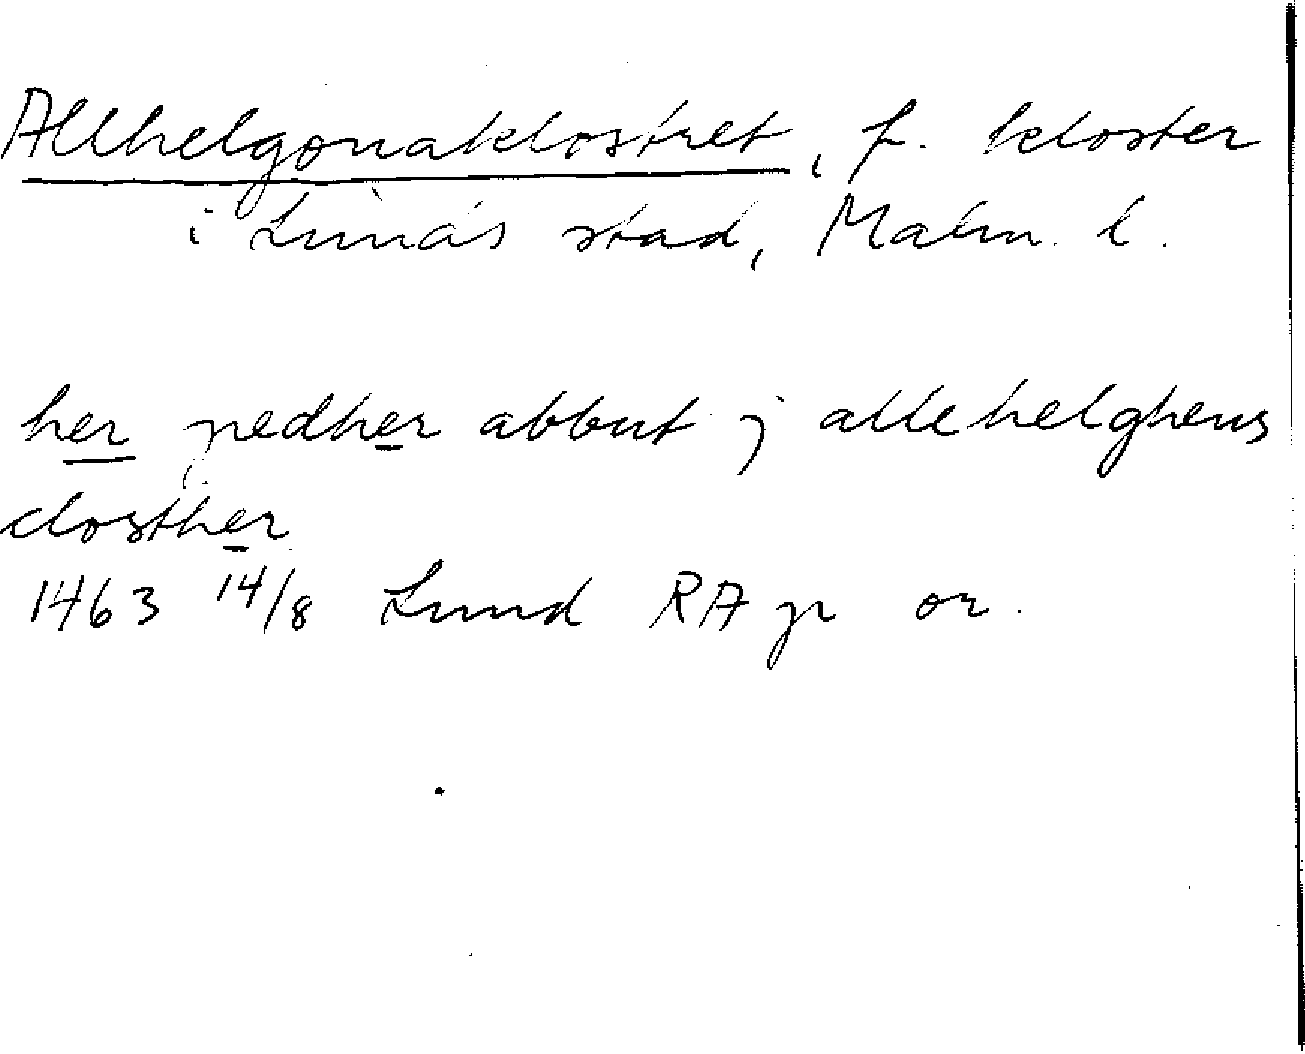 Allhelgonaklostret, f. kloster
i Lunds stad, Malm. l.
her pedher abbut j allehelghens
closther
1463 14/8 Lund RA p or.